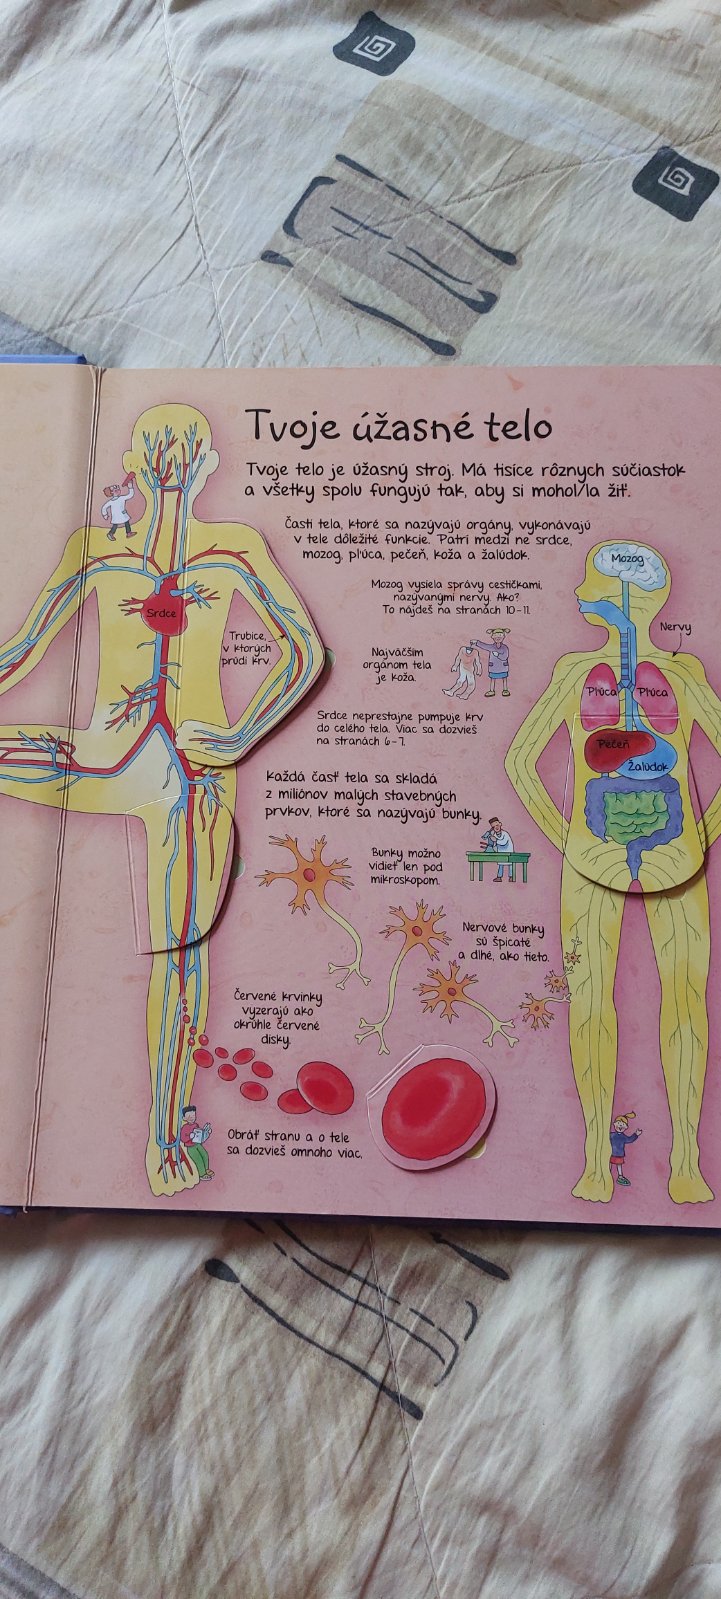 Tvoje úžasné telo
Tvoje telo je úžasný stroj. Má tisíce rôznych súčiastok
a všetky spolu fungujú tak, aby si mohol/la žiť.
Časti tela, ktoré sa nazývajú orgány, vykonávajú
v tele dôležité funkcie. Patrí medzi ne srdce,
mozog, pľúca, pečeň, koža a žalúdok.
Mozog vysiela správy cestičkami,
nazývanými nervy. Ako?
To nájdeš na stranách 10–11.
Najväčším
orgánom tela
je koža.
Srdce neprestajne pumpuje krv
do celého tela. Viac sa dozvieš
na stranách 6–7.
Každá časť tela sa skladá
z miliónov malých stavebných
prvkov, ktoré sa nazývajú bunky.
Bunky možno
vidieť len pod
mikroskopom.
Nervové bunky
sú špicaté
a dlhé, ako tieto.
Červené krvinky
vyzerajú ako
okrúhle červené
disky.
Obráť stranu a o tele
sa dozvieš omnoho viac.
Srdce
Trubice,
v ktorých
prúdi krv.
Mozog
Nervy
Pľúca
Pľúca
Pečeň
Žalúdok